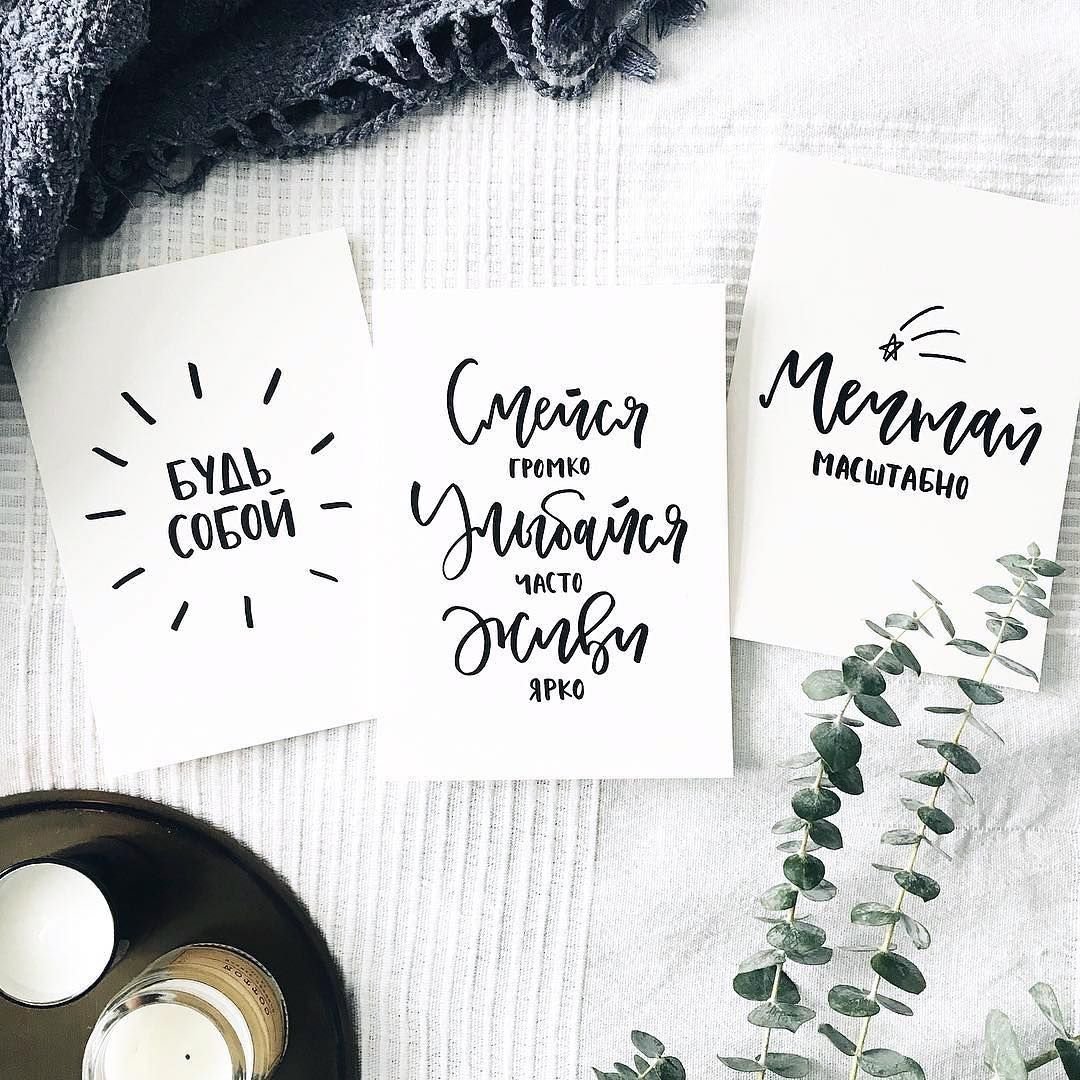 БУДЬ
СОБОЙ
Смейся
ГРОМКО
Улыбайся
ЧАСТО
Живи
ЯРКО
Мечтай
МАСШТАБНО
COTTON